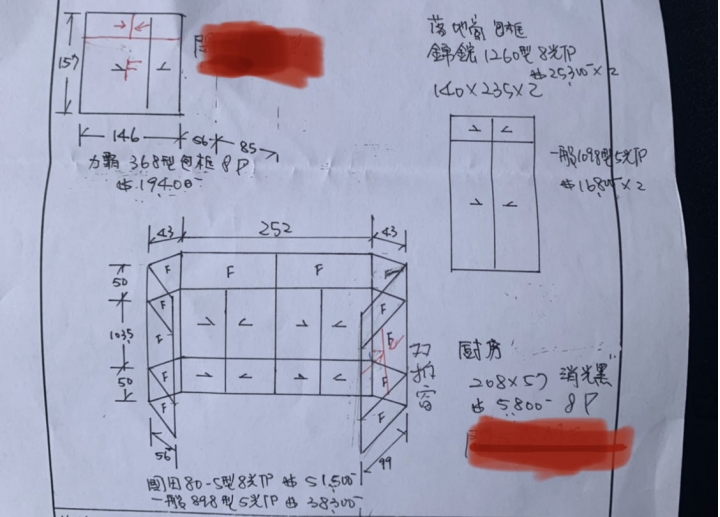 157
F
146
56
85
力霸 368型包框 8P
$19400-
落地窗 包框
錦鋐 1260型 8光P
$25300-×2
140×235×2
一般1098型5光P
$16800-×2
43
252
43
F
F
F
F
50
F
F
1035
F
F
F
50
F
F
F
F
双拍窗
56
99
80-5型8光P $51500-
一般898型5光P $38300-
厨房
208×57 消光黑
$5800- 8P